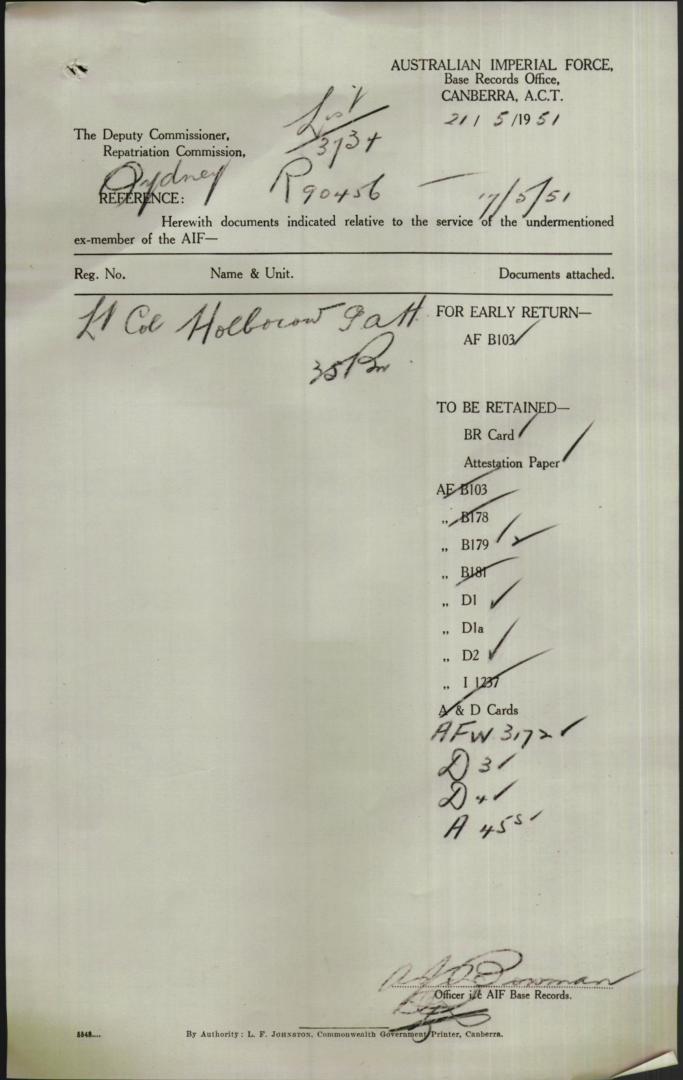 AUSTRALIAN IMPERIAL FORCE,
Base Records Office,
CANBERRA, A.C.T.
21/5/1951
List
3734
The Deputy Commissioner,
Repatriation Commission,
Sydney
REFERENCE: R90456 — 17/5/51
Herewith documents indicated relative to the service of the undermentioned
ex-member of the AIF—
Reg. No. Name & Unit. Documents attached.
Lt Col Holborow
35 Bn
FOR EARLY RETURN—
AF B103
TO BE RETAINED—
BR Card
Attestation Paper
AF B103
„ B178
„ B179 2
„ B181
„ D1
„ D1a
„ D2
„ I 1237
A & D Cards
AFW 3172
D3
D4
A 45s
Bowman
Officer i/c AIF Base Records.
5548....
By Authority: L. F. JOHNSTON, Commonwealth Government Printer, Canberra.